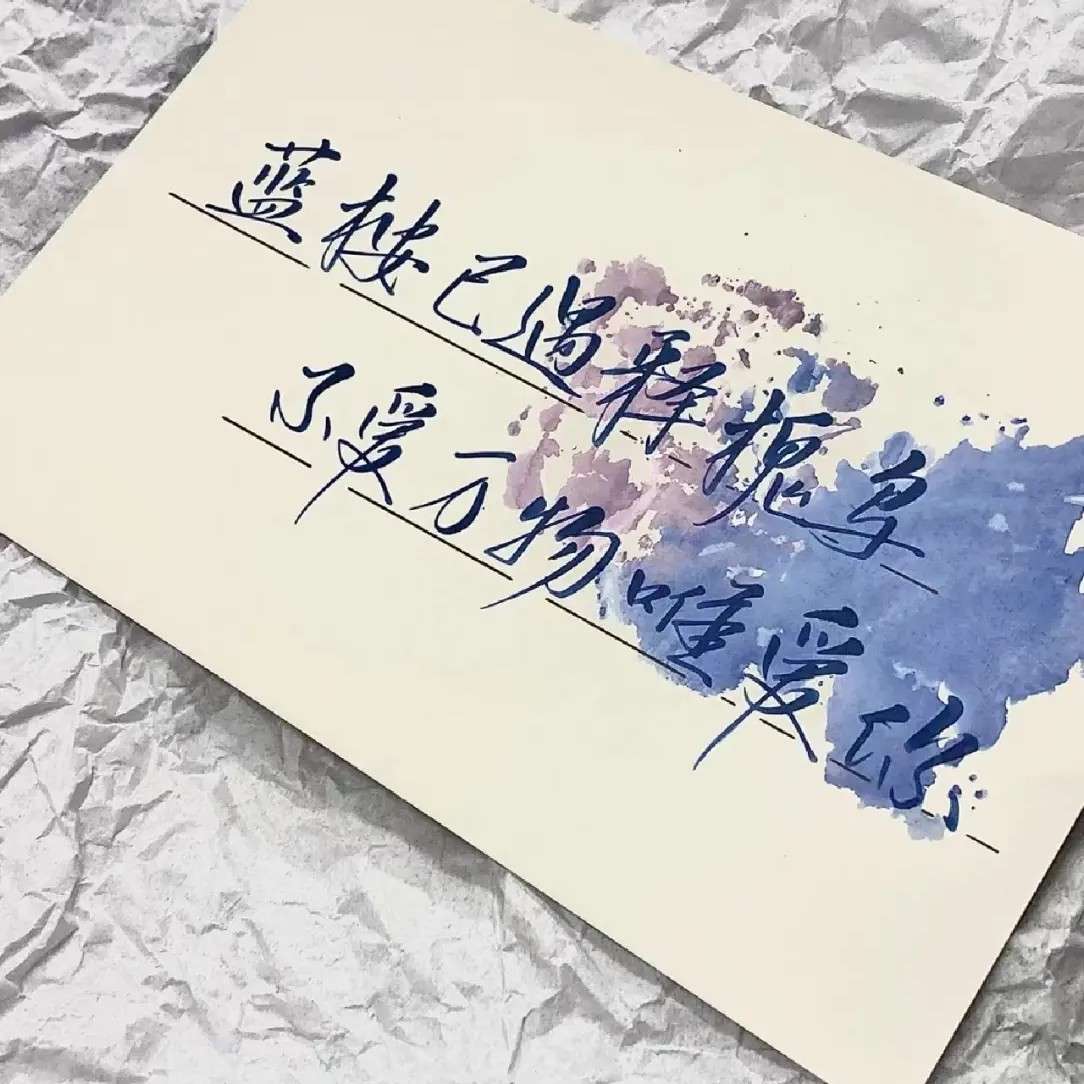 蓝楼已遇释槐鸟
不爱万物唯爱你